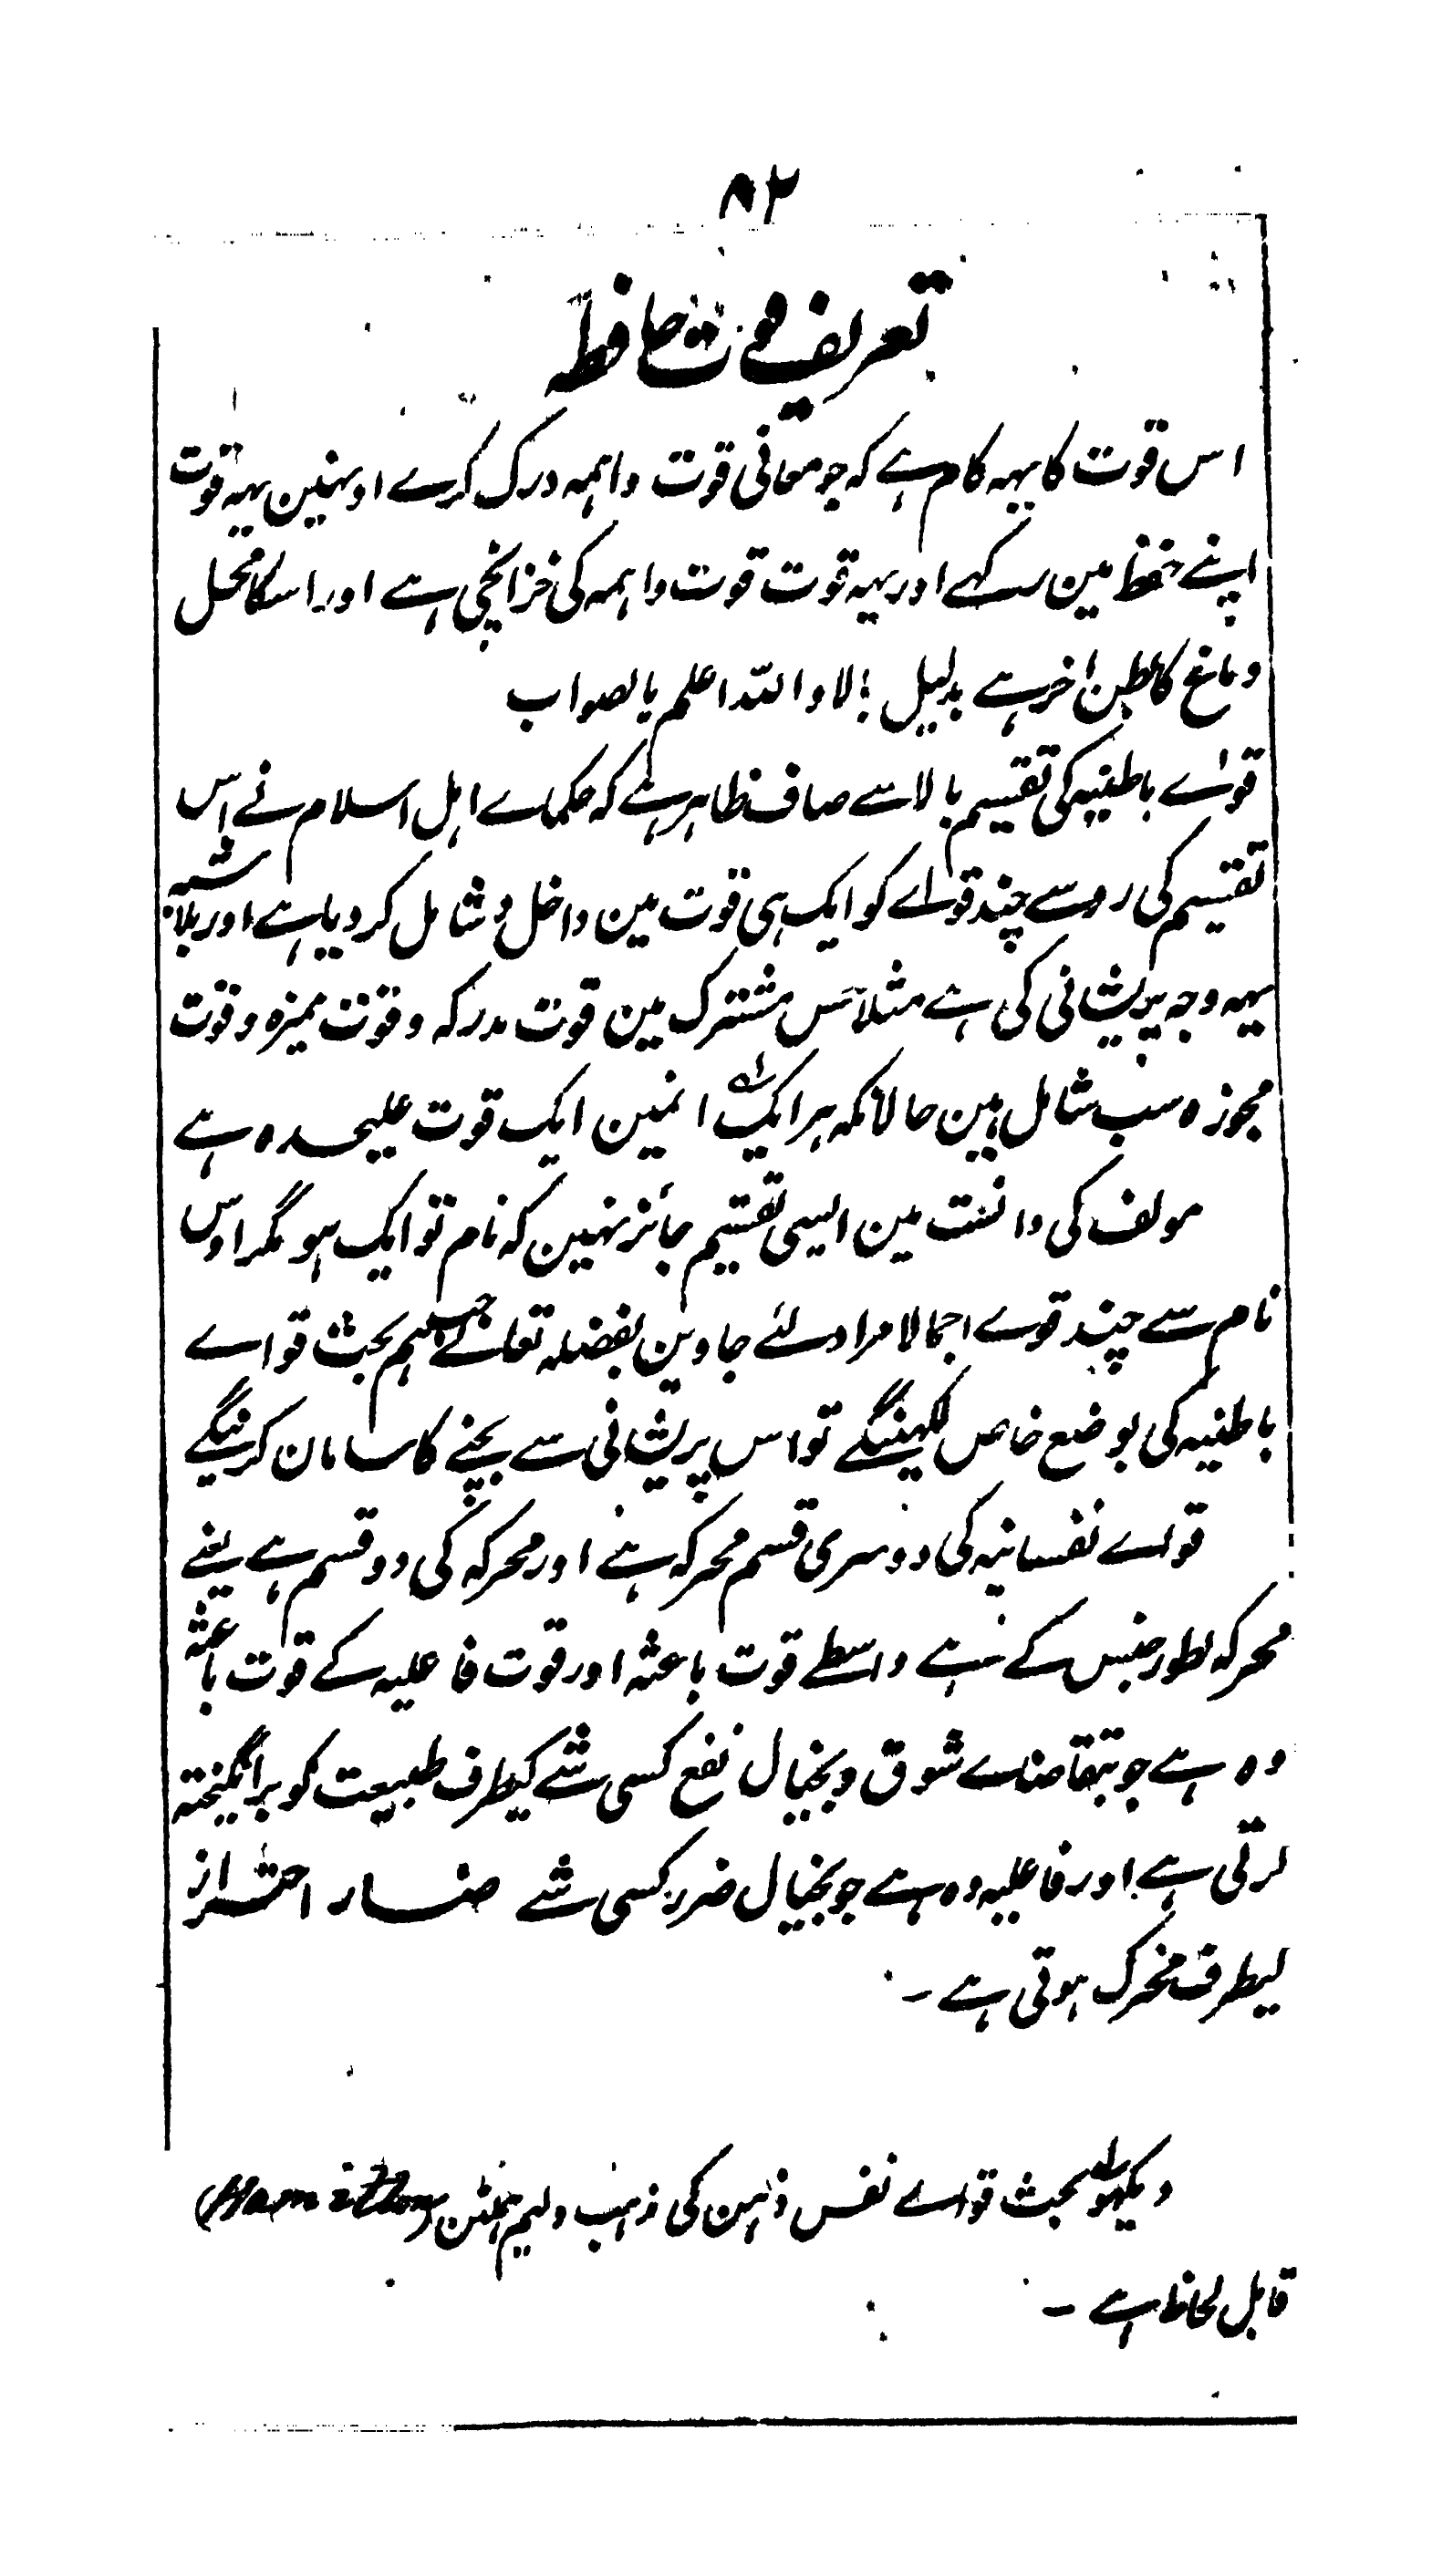 ۸۲
تعریف قوت حافظہ
اس قوت کا یہہ کام ہے کہ جو معانی قوت واہمہ درک کرے اونہین یہہ قوت
اپنے حفظ مین رکہے اور یہہ قوت قوت واہمہ کی خزانچی ہے اور اسکا محل
دماغ کا بطن اخر ہے بدلیل بالا واللہ اعلم بالصواب
قواے باطنیہ کی تقیسم بالا سے صاف ظاہر ہے کہ حکماے اہل اسلام نے اس
تقیسم کی رو سے چند قواے کو ایک ہی قوت مین داخل و شامل کر دیا ہے اور بلاشبہ
یہہ وجہ پریشانی کی ہے مثلاً حس مشترک مین قوت مدرکہ و قوت ممیزہ و قوت
مجوزہ سب شامل ہین حالانکہ ہر ایک انمین ایک قوت علیحدہ ہے
مولف کی دانست مین ایسی تقسیم جائز نہین کہ نام تو ایک ہو مگر اوس
نام سے چند قوے اجمالا مراد لئے جاوین بفضلہ تعالے جب ہم بحث قواے
باطنیہ کی بوضع خاص لکہینگے تو اس پریشانی سے بچنے کا سامان کرینگے
قواے نفسانیہ کی دوسری قسم محرکہ ہے اور محرکہ کی دو قسم ہے یعنے
محرکہ بطور جنس کے ہے واسطے قوت باعثہ اور قوت فاعلیہ کے قوت باعثہ
وہ ہے جو بتقاضاے شوق و بخیال نفع کسی شے کیطرف طبیعت کو برانگیختہ
کرتی ہے اور فاعلیہ وہ ہے جو بخیال ضرر کسی شے ضار احتراز
کیطرف محرک ہوتی ہے ۔
دیکہو بحث قواے نفس ذہن کی مذہب ولیم ہملٹن (Hamilton)
قابل لحاظ ہے ۔